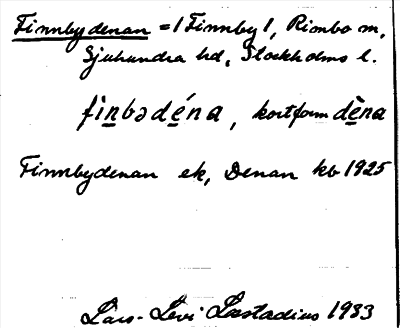 Finnbydenan = 1 Finnby 1, Rimbo sn,
Sjuhundra hd, Stockholms l.
fìn̲bədé̲na, kortform dè̲na
Finnbydenan ek, Denan kb 1925
Lars-Levi Læstadius 1933